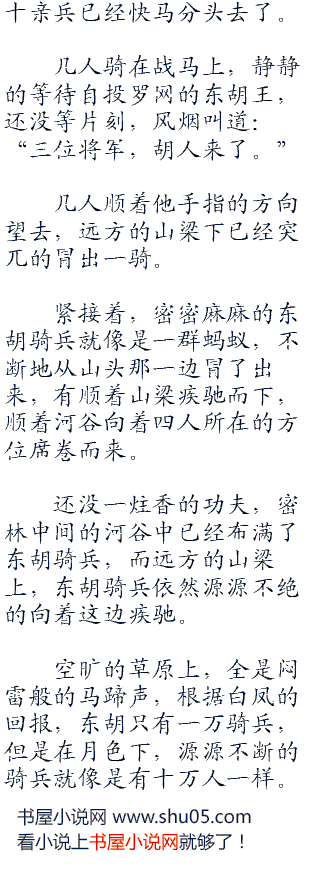 十亲兵已经快马分头去了。
几人骑在战马上，静静
的等待自投罗网的东胡王，
还没等片刻，风烟叫道：
“三位将军，胡人来了。”
几人顺着他手指的方向
望去，远方的山梁下已经突
兀的冒出一骑。
紧接着，密密麻麻的东
胡骑兵就像是一群蚂蚁，不
断地从山头那一边冒了出
来，有顺着山梁疾驰而下，
顺着河谷向着四人所在的方
位席卷而来。
还没一炷香的功夫，密
林中间的河谷中已经布满了
东胡骑兵，而远方的山梁
上，东胡骑兵依然源源不绝
的向着这边疾驰。
空旷的草原上，全是闷
雷般的马蹄声，根据白凤的
回报，东胡只有一万骑兵，
但是在月色下，源源不断的
骑兵就像是有十万人一样。
书屋小说网 www.shu05.com
看小说上书屋小说网就够了！